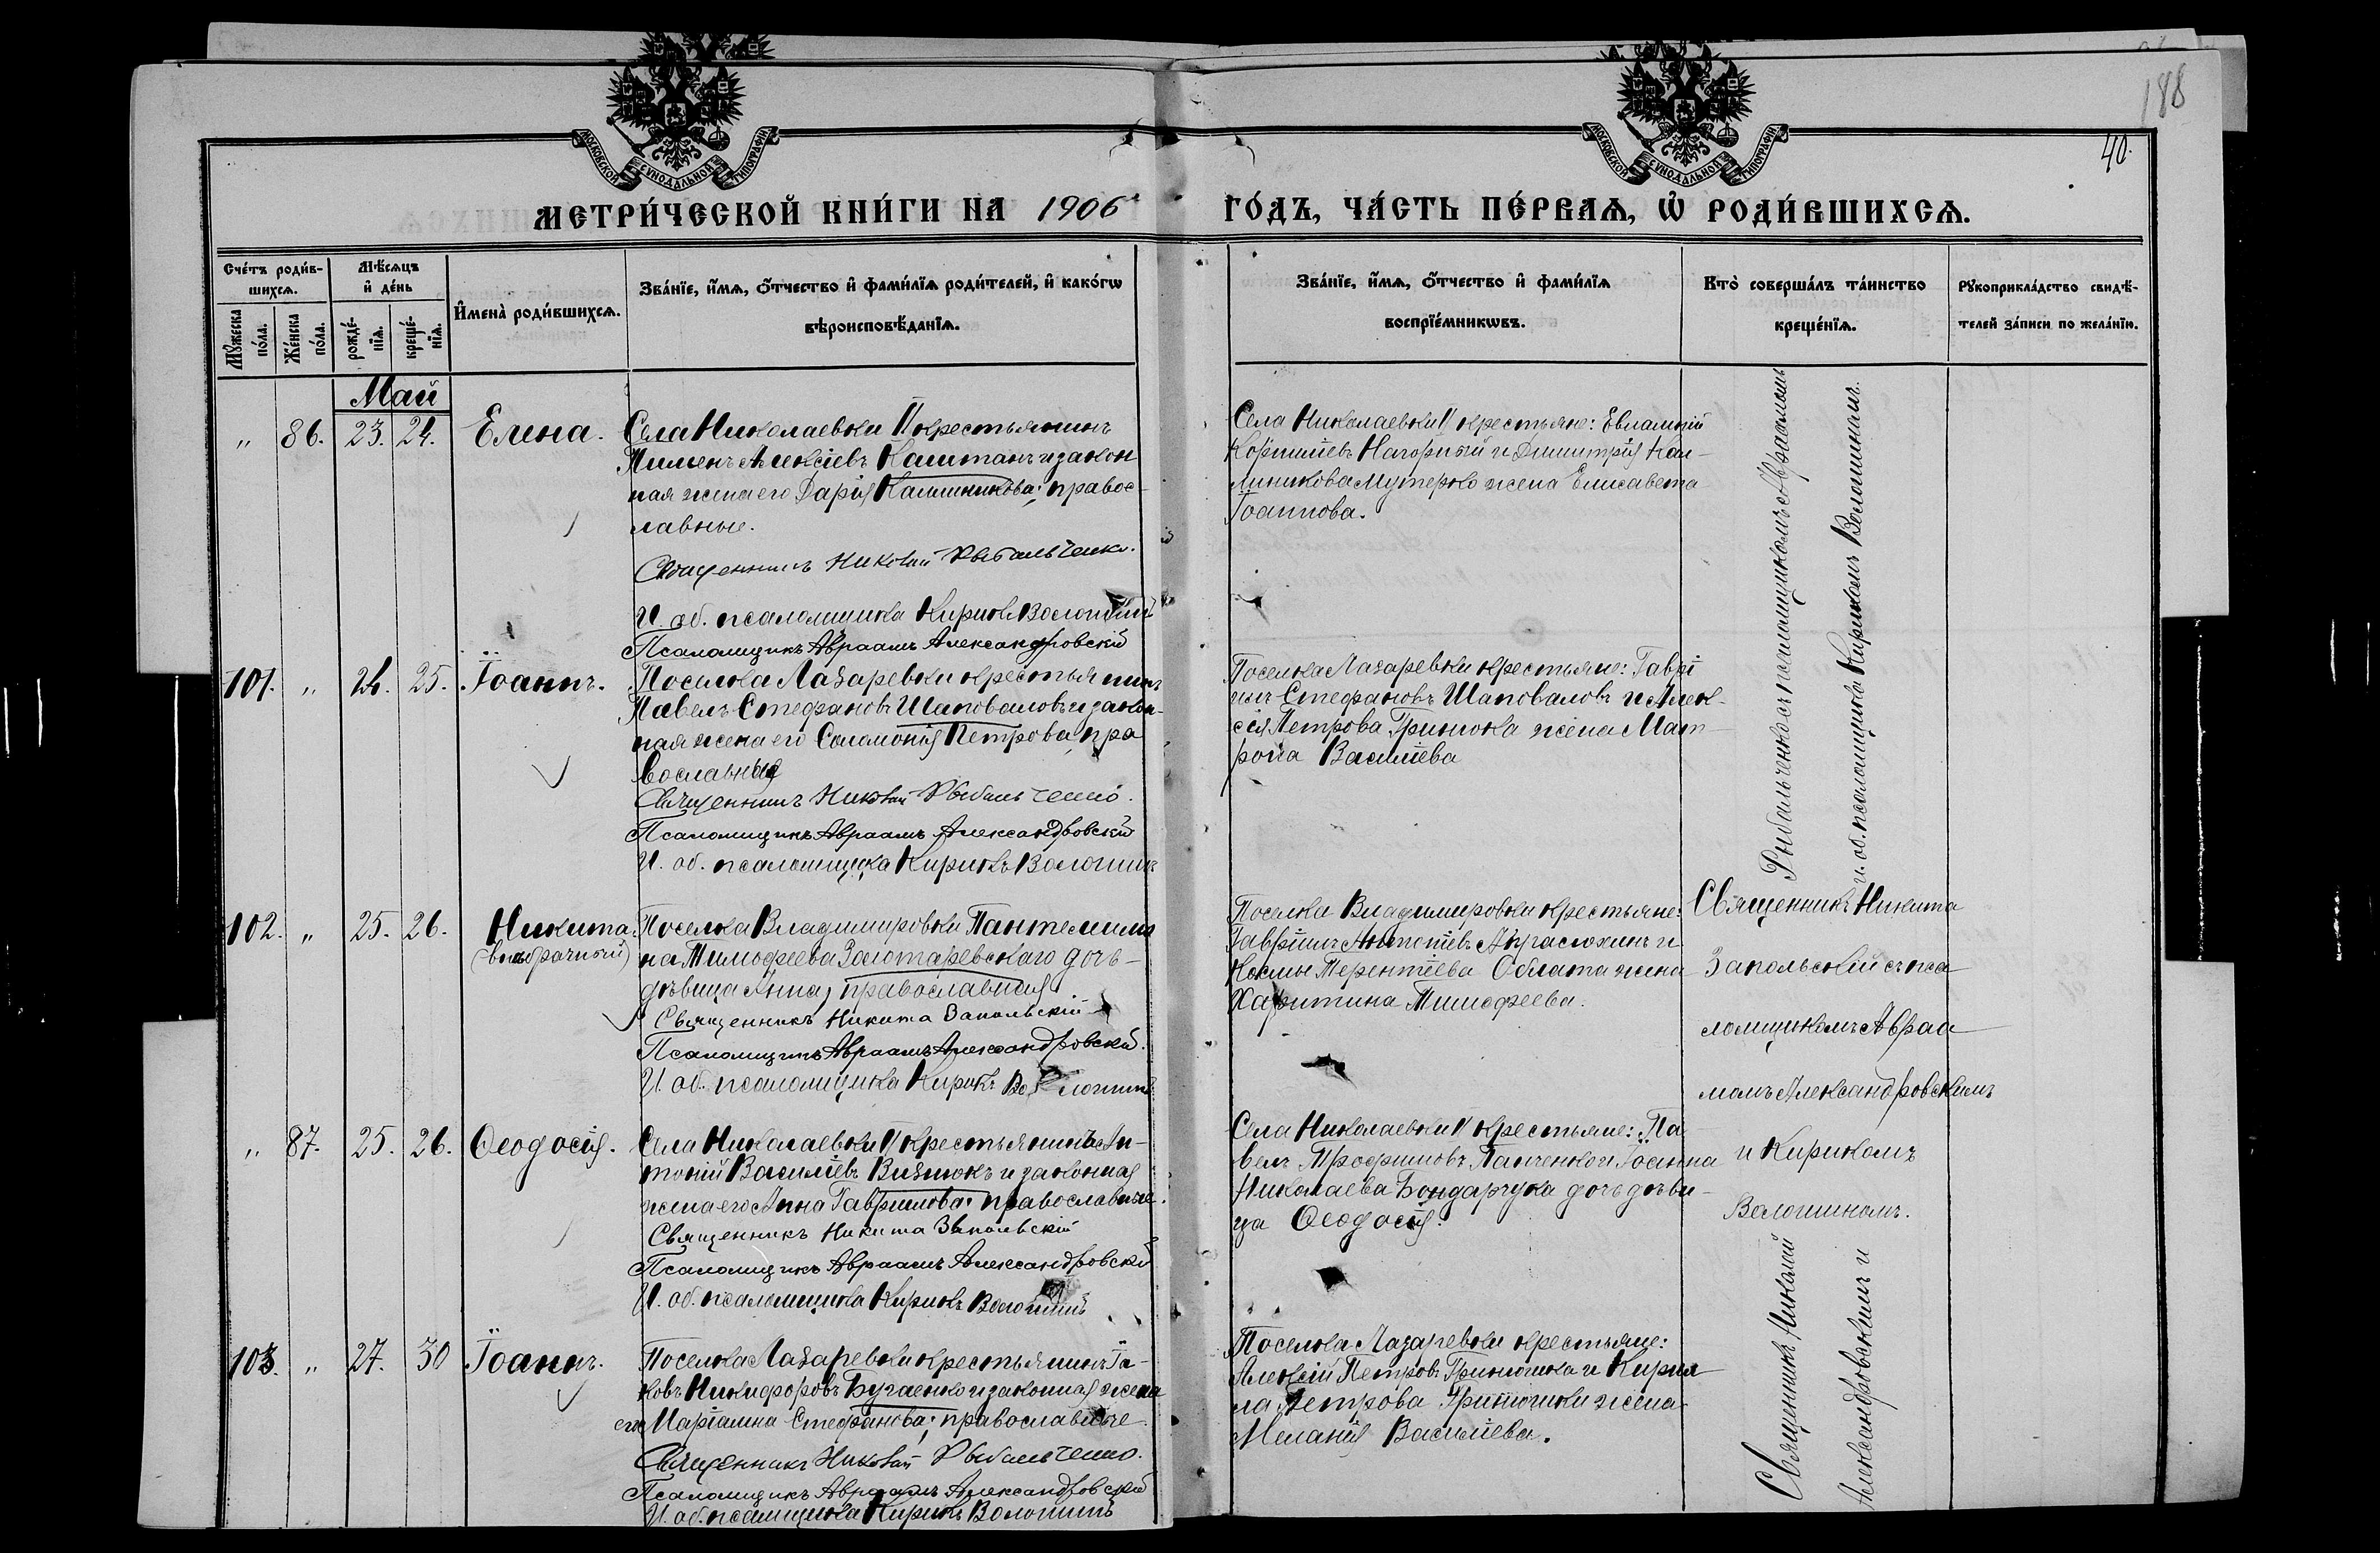 188
40.
МОСКОВСКОЙ СѴНОДАЛЬНОЙ ТИПОГРАФІИ
МОСКОВСКОЙ СѴНОДАЛЬНОЙ ТИПОГРАФІИ
МЕТРИ́ЧЕСКОЙ КНИ́ГИ НА 1906 ГО́ДЪ, ЧА́СТЬ ПЕ́РВАѦ, Ѡ҆ РОДИ́ВШИХСѦ.
Сче́тъ роди́в-
шихсѧ.
Мꙋжеска по́ла.
Же́нска по́ла.
Мѣ́сѧцъ
и҆ де́нь
рожде́-
нїѧ.
креще́-
нїѧ.
И҆мена̀ роди́вшихсѧ.
Зва́нїе, и҆́мѧ, ѻ҆́тчество и҆ фами́лїѧ роди́телей, и҆ како́гѡ
вѣроисповѣ́данїѧ.
Зва́нїе, и҆́мѧ, ѻ҆́тчество и҆ фами́лїѧ
воспрїе́мникѡвъ.
Кто̀ соверша́лъ та́инство
креще́нїѧ.
Рꙋкоприкла́дство свидѣ́-
телей за́писи по жела́нїю.
Май
„ 86. 23. 24. Елена.
Села Николаевки II крестьянинъ
Пименъ Алексіевъ Каштанъ и закон
ная жена его Дарія Калинникова; правос-
лавные.
Священникъ Николай Рыбальченко.
И. об. псаломщика Кирикъ Волошинъ
Псаломщикъ Авраамъ Александровскій
Села Николаевки II крестьяне: Евлампій
Нагорный и Димитрія Кал-
линикова жена Елисавета
Іоаннова.
101. „ 24. 25. Іоаннъ.
Поселка Лазаревки крестьянинъ
Павелъ Стефановъ Шаповаловъ и закон-
ная жена его Соломонія Петрова, пра
вославные
Священникъ Николай Рыбальченко.
Псаломщикъ Авраамъ Александровскій
И. об. псаломщика Кирикъ Волошинъ
Поселка Лазаревки крестьяне: Гаврі
илъ Стефановъ Шаповаловъ и Алек-
сія Петрова Гринюка жена Мат-
рона Василіева
Рыбальченко съ псаломщикомъ Авраамомъ
и. об. псаломщика Кирикомъ Волошинымъ.
102. „ 25. 26. Никита.
(внѣбрачный)
Поселка Владимировки Пантелеимо
на Тимофеева Золотаревскаго дочь-
дѣвица Анна, православная
Священникъ Никита Запольскій
Псаломщикъ Авраамъ Александровскій.
И. об. псаломщика Кирикъ Волошинъ
Поселка Владимировки крестьяне:
Гавріилъ Антоніевъ и
Космы Терентіева жена
Харитина Тимофеева.
Священникъ Никита
Запольскій съ пса
ломщикомъ Авраа
момъ Александровскимъ
и Кирикомъ
Волошинымъ.
„ 87. 25. 26. Ѳеодосія.
Села Николаевки II крестьянинъ Ан-
тоній Василіевъ Визнюкъ и законная
жена его Анна Гавриилова; православные.
Священникъ Никита Запольскій
Псаломщикъ Авраамъ Александровскій
И. об. псаломщика Кирикъ Волошинъ
Села Николаевки II крестьяне: Па-
велъ Трофимовъ Панченко и Іоанна
Николаева Бондарчука дочь дѣви-
ца Ѳеодосія.
103. „ 27. 30 Іоаннъ.
Поселка Лазаревки крестьянинъ Іа-
ковъ Никифоровъ Бугаенко и законная жена
его Маріамна Стефанова; православные.
Священникъ Николай Рыбальченко.
Псаломщикъ Авраамъ Александровскій
И. об. псаломщика Кирикъ Волошинъ
Поселка Лазаревки крестьяне:
Алексій Петровъ и Кирил
ла Петрова жена
Меланія Василіева.
Священникъ Николай
Александровскимъ и